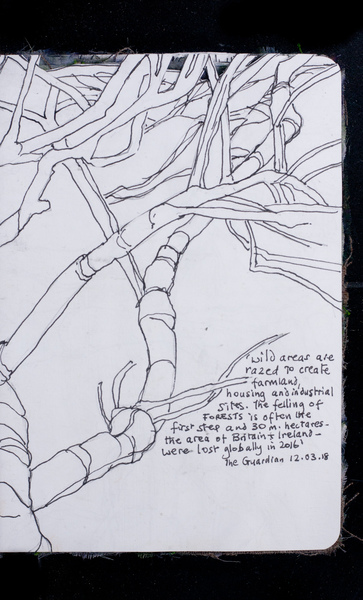 'wild areas are
razed to create
farmland,
housing and industrial
sites. The felling of
FORESTS is often the
first step and 30 m. hectares -
the area of Britain + Ireland -
were lost globally in 2016'
The Guardian 12.03.18